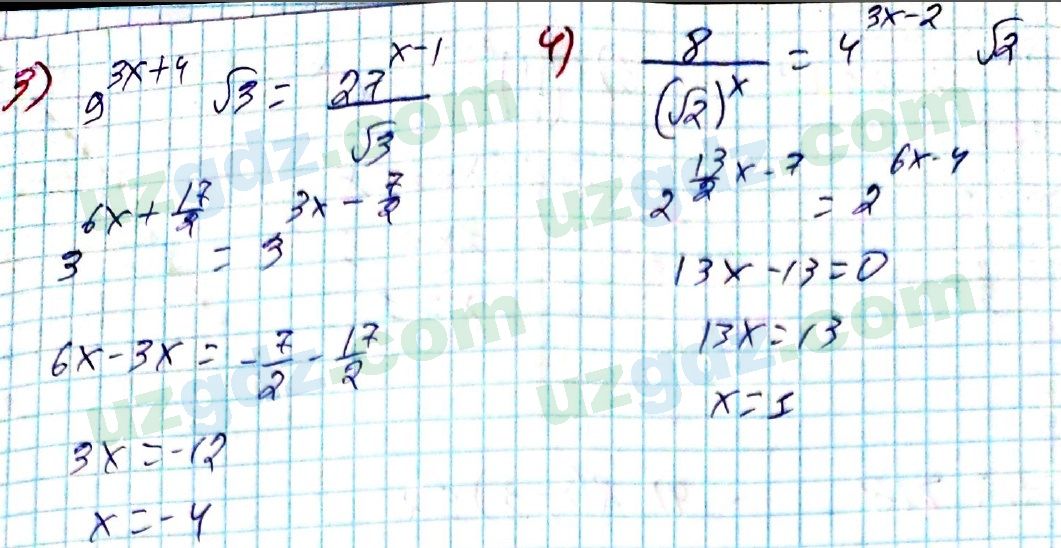 3) 9^{3x+4} √3 = \frac{27^{x-1}}{√3}
3^{6x+\frac{17}{2}} = 3^{3x-\frac{7}{2}}
6x-3x = -\frac{7}{2}-\frac{17}{2}
3x=-12
x=-4
4) \frac{8}{(√2)^x} = 4^{3x-2} √2
2^{\frac{13}{2}x-7} = 2^{6x-4}
13x-13=0
13x=13
x=1
uzgdz.com
uzgdz.com
uzgdz.com
uzgdz.com